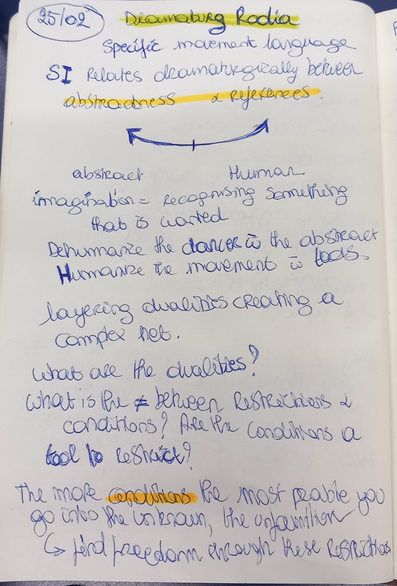 25/02
Dramaturg Rodia
Specific movement language
SI Relates dramaturgically between
abstractness & references.
abstract Human
imagination = recognising something
that is wanted
Dehumanize the dancer in the abstract
Humanize the movement in tools.
layering dualities creating a
complex net.
What are the dualities?
What is the ≠ between Restrictions &
conditions? Are the conditions a
tool to restrict?
The more conditions the most posible you
go into the unknown, the unfamiliar
↳ find freedom through these restrictions